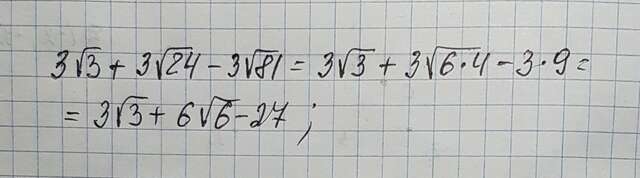 3√3 + 3√24 - 3√81 = 3√3 + 3√6·4 - 3·9 =
= 3√3 + 6√6 - 27 ;